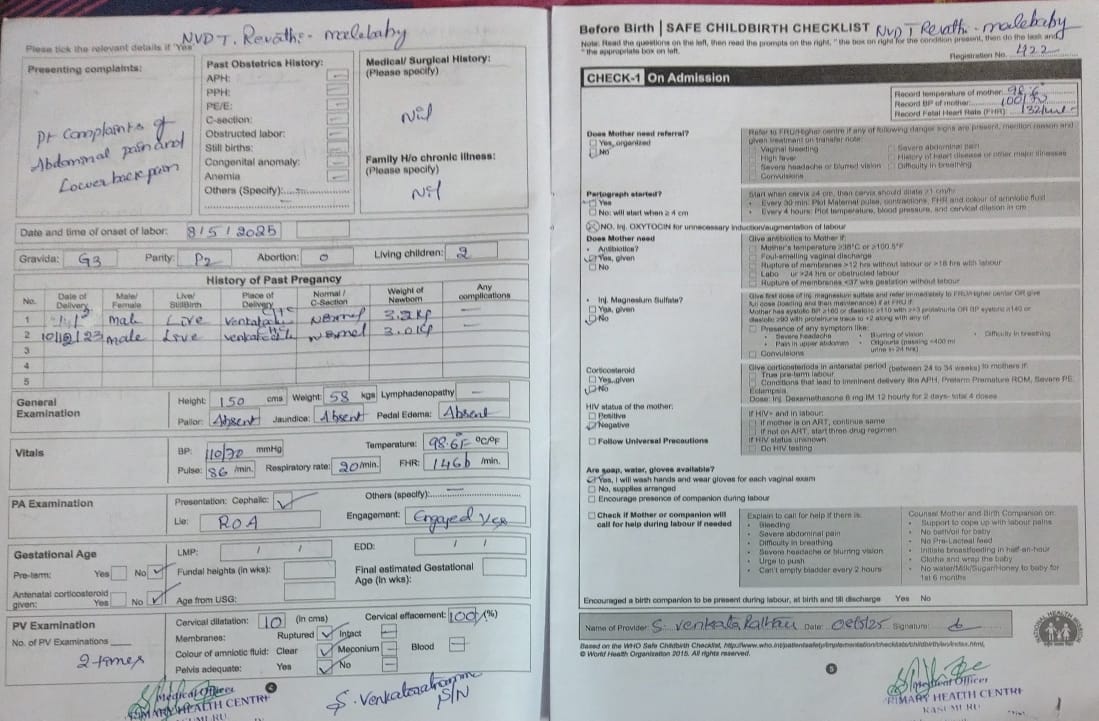 NVD T. Revathi - malebaby
Please tick the relevant details if 'Yes'
Presenting complaints:
Pt Complaints of
Abdominal pain and
Lower back pain
Past Obstetrics History:
APH: —
PPH: —
PE/E: —
C-section: —
Obstructed labor: —
Still births: —
Congenital anomaly: —
Anemia —
Others (Specify): —
Medical/ Surgical History:
(Please specify)
Nil
Family H/o chronic illness:
(Please specify)
Nil
Date and time of onset of labor: 8/5/2025
Gravida: G3 Parity: P2 Abortion: 0 Living children: 2
History of Past Pregancy
No. Date of Delivery Male/ Female Live/ Stillbirth Place of Delivery Normal / C-Section Weight of Newborn Any complications
1 male Live Normel 3.2kg
2 male Live Normel 3.0kg
3
4
5
General Examination
Height: 150 cms Weight: 58 kgs Lymphadenopathy —
Pallor: Absent Jaundice: Absent Pedal Edema: Absent
Vitals
BP: 110/70 mmHg Temperature: 98.6F °C/°F
Pulse: 86 /min. Respiratory rate: 20/min. FHR: 146b /min.
PA Examination
Presentation: Cephalic: ✓ Others (specify): —
Lie: ROA Engagement: Engaged Yes
Gestational Age
LMP: / / EDD: / /
Pre-term: Yes No ✓ Fundal heights (in wks): Final estimated Gestational Age (in wks):
Antenatal corticosteroid given: Yes No ✓ Age from USG:
PV Examination
Cervical dilatation: 10 (in cms) Cervical effacement: 100 (%)
No. of PV Examinations
2 times
Membranes: Ruptured ✓ Intact —
Colour of amniotic fluid: Clear ✓ Meconium — Blood —
Pelvis adequate: Yes ✓ No —
Medical Officer
PRIMARY HEALTH CENTRE
S/N
Before Birth | SAFE CHILDBIRTH CHECKLIST NVD T Revathi - malebaby
Note: Read the questions on the left, then read the prompts on the right, " the box on right for the condition present, then do the task and
" the appropriate box on left.
Registration No. 422
CHECK-1 On Admission
Record temperature of mother: 98.6
Record BP of mother: 100/70
Record Fetal Heart Rate (FHR): 132/mt
Does Mother need referral?
Yes, organized
No
Refer to FRU/Higher centre if any of following danger signs are present, mention reason and
given treatment on transfer note:
Vaginal bleeding
High fever
Severe headache or blurred vision
Convulsions
Severe abdominal pain
History of heart disease or other major illnesses
Difficulty in breathing
Partograph started?
Yes
No: will start when ≥ 4 cm
Start when cervix ≥4 cm, then cervix should dilate ≥1 cm/hr
• Every 30 min: Plot Maternal pulse, contractions, FHR and colour of amniotic fluid
• Every 4 hours: Plot temperature, blood pressure, and cervical dilation in cm
NO. Inj. OXYTOCIN for unnecessary induction/augmentation of labour
Does Mother need
• Antibiotics?
Yes, given
No
Give antibiotics to Mother if:
Mother's temperature ≥38°C or ≥100.5°F
Foul-smelling vaginal discharge
Rupture of membranes >12 hrs without labour or >18 hrs with labour
Labo ur >24 hrs or obstructed labour
Rupture of membranes <37 wks gestation without labour
• Inj. Magnesium Sulfate?
Yes, given
No
Give first dose of inj. magnesium sulfate and refer immediately to FRU/Higher center OR give
full dose (loading and then maintenance) if at FRU if:
Mother has systolic BP ≥160 or diastolic ≥110 with ≥+3 proteinuria OR BP systolic ≥140 or
diastolic ≥90 with proteinuria trace to +2 along with any of:
Presence of any symptom like:
• Severe headache
• Pain in upper abdomen
• Blurring of vision
• Oliguria (passing <400 ml urine in 24 hrs)
• Difficulty in breathing
Convulsions
Corticosteroid
Yes, given
No
Give corticosteriods in antenatal period (between 24 to 34 weeks) to mothers if:
True pre-term labour
Conditions that lead to imminent delivery like APH, Preterm Premature ROM, Severe PE,
Eclampsia
Dose: Inj. Dexamethasone 6 mg IM 12 hourly for 2 days- total 4 doses
HIV status of the mother:
Positive
Negative
Follow Universal Precautions
If HIV+ and in labour:
If mother is on ART, continue same
If not on ART, start three drug regimen
If HIV status unknown:
Do HIV testing
Are soap, water, gloves available?
Yes, I will wash hands and wear gloves for each vaginal exam
No, supplies arranged
Encourage presence of companion during labour
Check if Mother or companion will
call for help during labour if needed
Explain to call for help if there is:
• Bleeding
• Severe abdominal pain
• Difficulty in breathing
• Severe headache or blurring vision
• Urge to push
• Can't empty bladder every 2 hours
Counsel Mother and Birth Companion on:
• Support to cope up with labour pains
• No bath/oil for baby
• No Pre-Lacteal feed
• Initiate breastfeeding in half-an-hour
• Clothe and wrap the baby
• No water/Milk/Sugar/Honey to baby for
1st 6 months
Encouraged a birth companion to be present during labour, at birth and till discharge Yes No
Name of Provider: S. Date: Signature:
Based on the WHO Safe Childbirth Checklist,
© World Health Organization 2015. All rights reserved.
5
Medical Officer
PRIMARY HEALTH CENTRE
KASUMURU